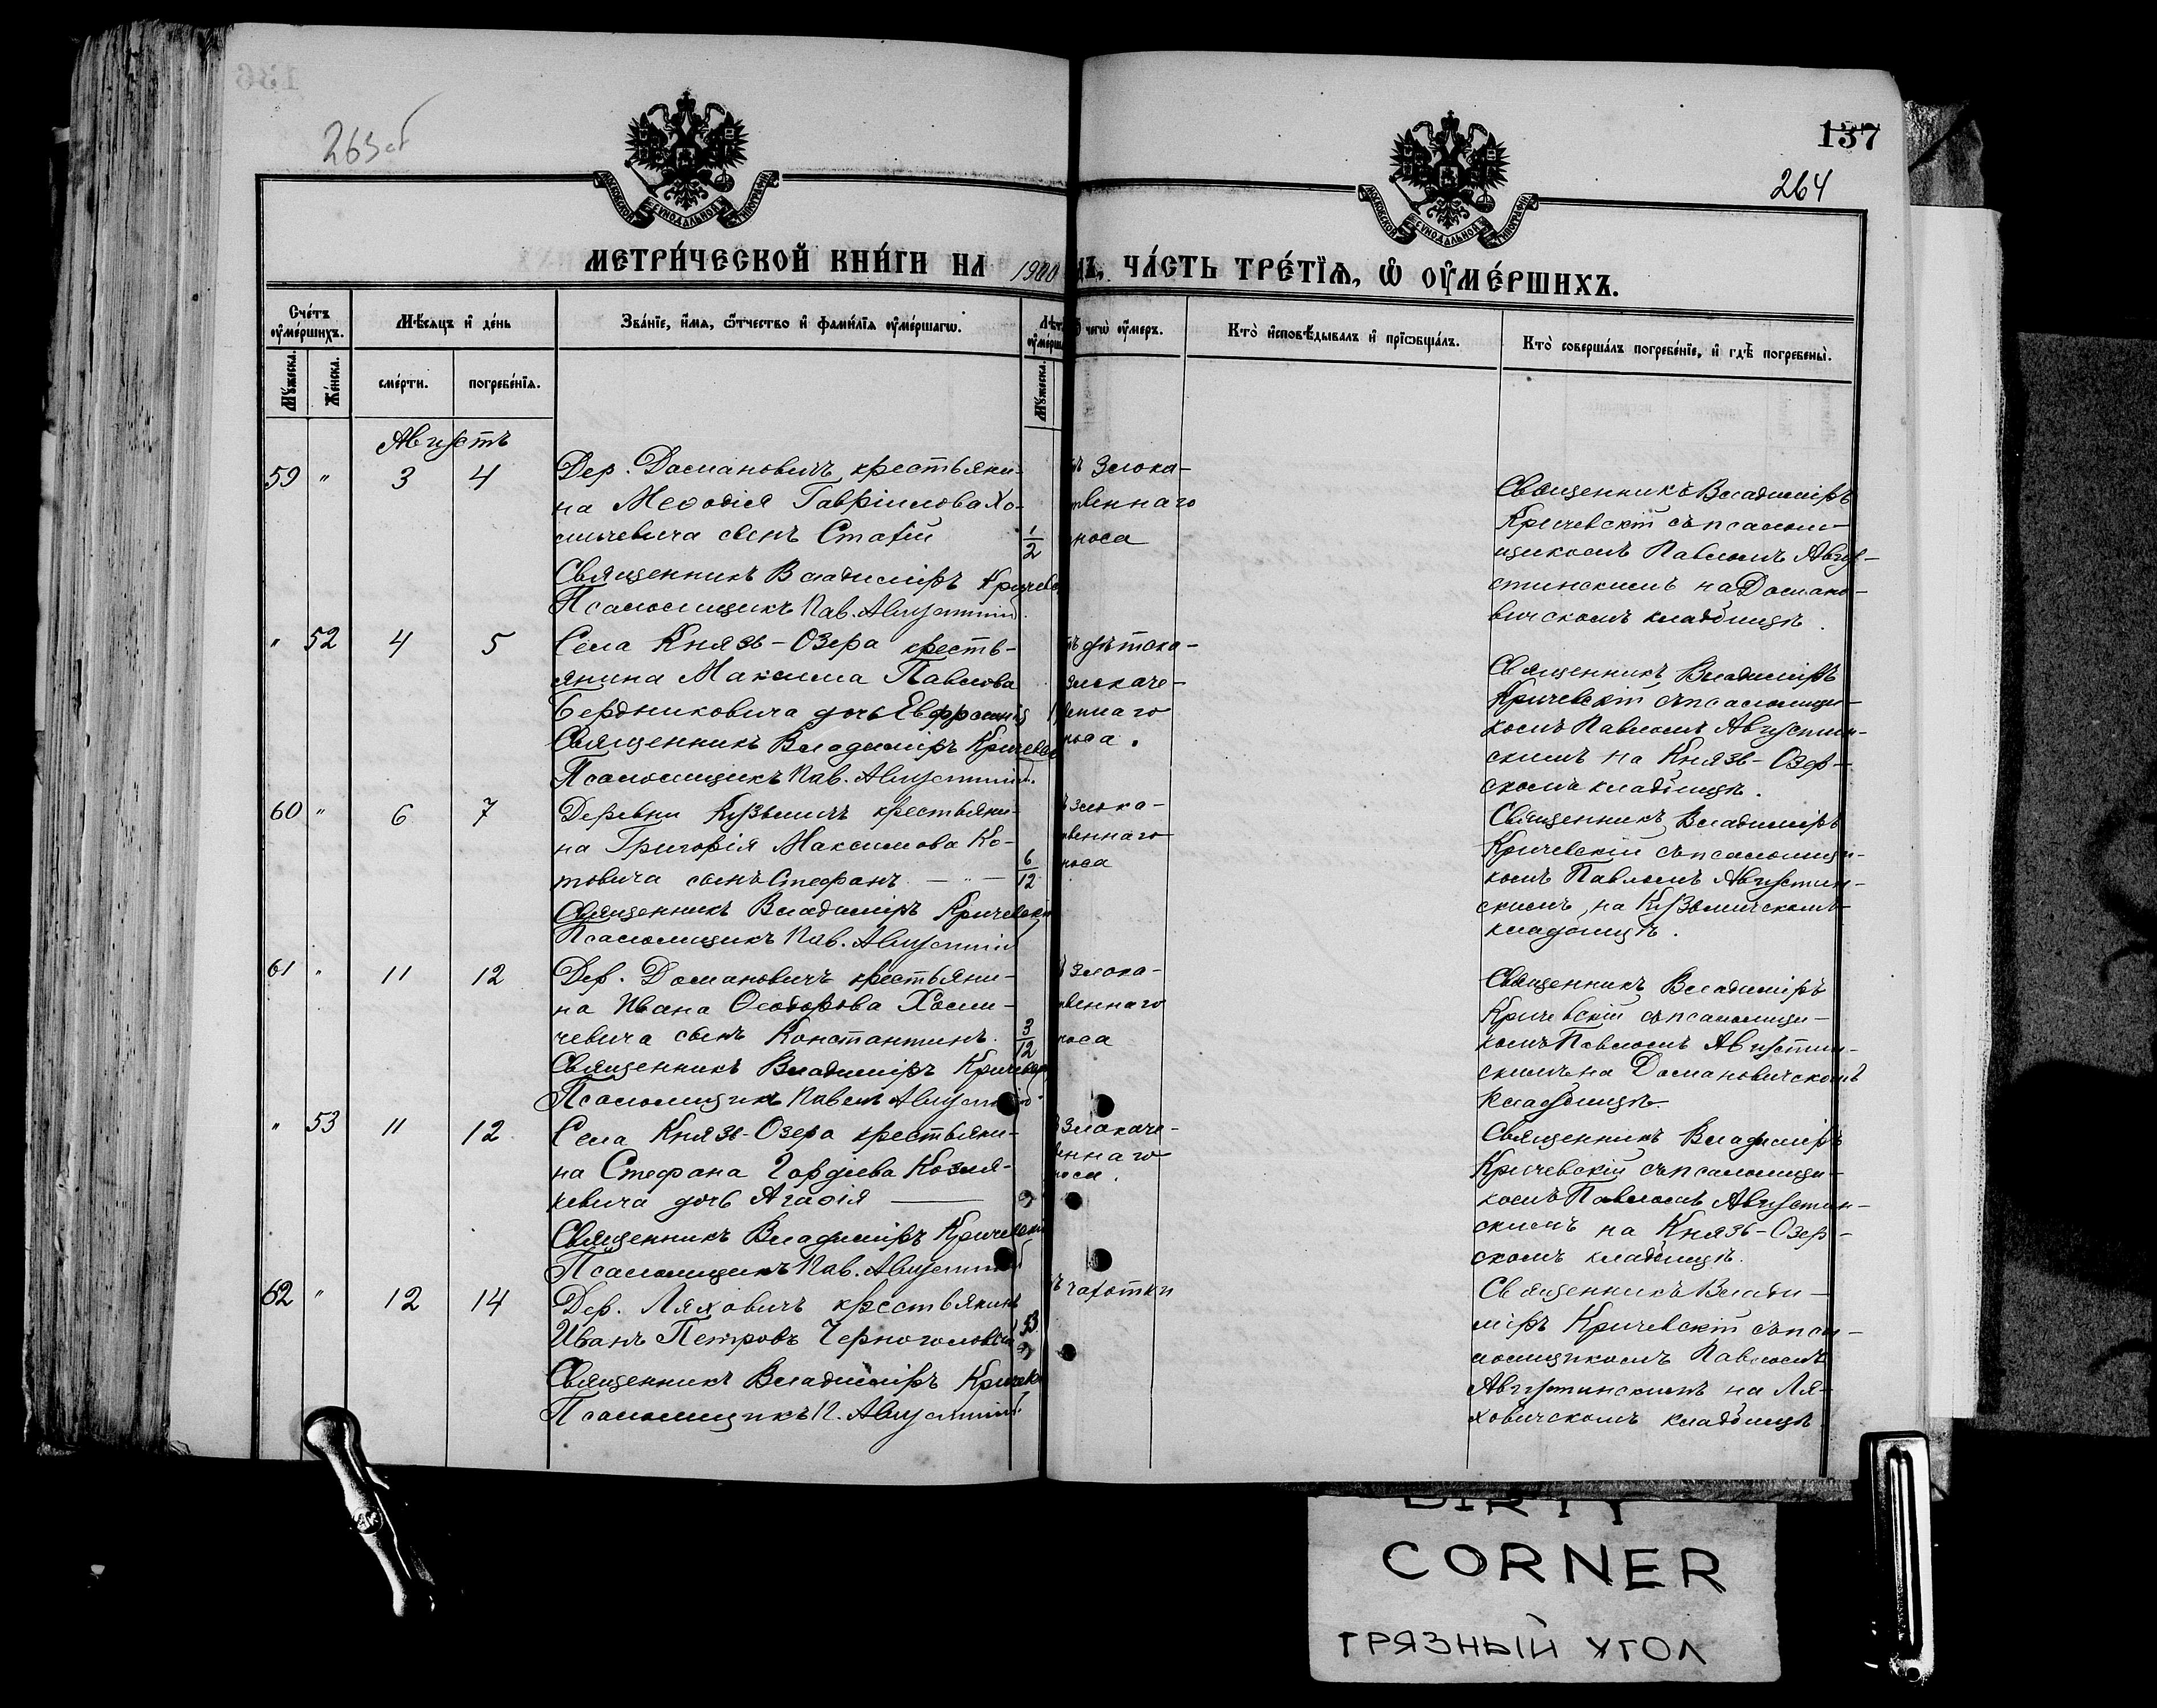 136
263об
137
264
МОСКОВСКОЙ СѴНОДАЛЬНОЙ ТИПОГРАФІИ
МОСКОВСКОЙ СѴНОДАЛЬНОЙ ТИПОГРАФІИ
МЕТРИ́ЧЕСКОЙ КНИ́ГИ НА 1900 ДЪ, ЧА́СТЬ ТРЕ́ТЇѦ, Ѽ ОУ҆МЕ́РШИХЪ.
Сче́тъ оу҆ме́ршихъ.
Мѣ́сяцъ и҆ де́нь
Зва́нїе, и҆́мѧ, ѻ҆́тчество и҆ фами́лїѧ оу҆ме́ршагѡ.
Лѣт
оу҆ме́рш
чегѡ̀ оу҆́меръ.
Кто̀ и҆сповѣ́дывалъ и҆ прїѡбща́лъ.
Кто̀ соверша́лъ погребе́нїе, и҆ гдѣ̀ погребены̀.
Мꙋ́жеска.
Же́нска.
сме́рти.
погребе́нїѧ.
Мꙋ́жеска.
Августъ
59 " 3 4
Дер. Домановичъ крестьяни-
на Меѳодія Гавріилова Хо-
мичевича сынъ Стафій 1/2
Священникъ Владиміръ Кричевс
Псаломщикъ Пав. Августин
ъ злока-
твеннаго
носа
Священникъ Владиміръ
Кричевскій съ псалом-
щикомъ Павломъ Авгу-
стинскимъ на Домано-
вичскомъ кладбищѣ.
" 52 4 5
Села Князь-Озера кресть-
янина Максима Павлова
Бердниковича дочь Евфросинія
Священникъ Владиміръ Кричевс
Псаломщикъ Пав. Августин
ъ дѣтска-
злокаче-
веннаго
носа.
Священникъ Владиміръ
Кричевскій съ псаломщи-
комъ Павломъ Августин-
скимъ на Князь-Озер-
скомъ кладбищѣ.
60 " 6 7
Деревни Кузьмичъ крестьяни-
на Григорія Максимова Ко-
товича сынъ Стефанъ — " — 6/12
Священникъ Владиміръ Кричевскі
Псаломщикъ Пав. Августин
ъ злока-
твеннаго
носа
Священникъ Владиміръ
Кричевскій съ псаломщи-
комъ Павломъ Августин-
скимъ на Кузьмичскомъ
кладбищѣ.
61 " 11 12
Дер. Домановичъ крестьяни-
на Ивана Ѳеодорова Хоми-
чевича сынъ Константинъ. 3/12
Священникъ Владиміръ Кричевск
Псаломщикъ Павелъ Августин
ъ злока-
твеннаго
носа
Священникъ Владиміръ
Кричевскій съ псаломщи-
комъ Павломъ Августин-
скимъ на Домановичскомъ
кладбищѣ.
" 53 11 12
Села Князь-Озера крестьяни-
на Стефана Гордіева Козля-
кевича дочь Агаѳія
Священникъ Владиміръ Кричевскі
Псаломщикъ Пав. Августин
злокаче-
еннаго
носа.
Священникъ Владиміръ
Кричевскій съ псаломщи-
комъ Павломъ Августин-
скимъ на Князь-Озер-
скомъ кладбищѣ.
62 " 12 14
Дер. Ляховичъ крестьянинъ
Иванъ Петровъ Черноголовый 53
Священникъ Владиміръ Кричевс
Псаломщикъ П. Августин
ъ чахотки
Священникъ Влади-
міръ Кричевскій съ пса-
ломщикомъ Павломъ
Августинскимъ на Ля-
ховичскомъ кладбищѣ.
DIRTY
CORNER
ГРЯЗНЫЙ УГОЛ